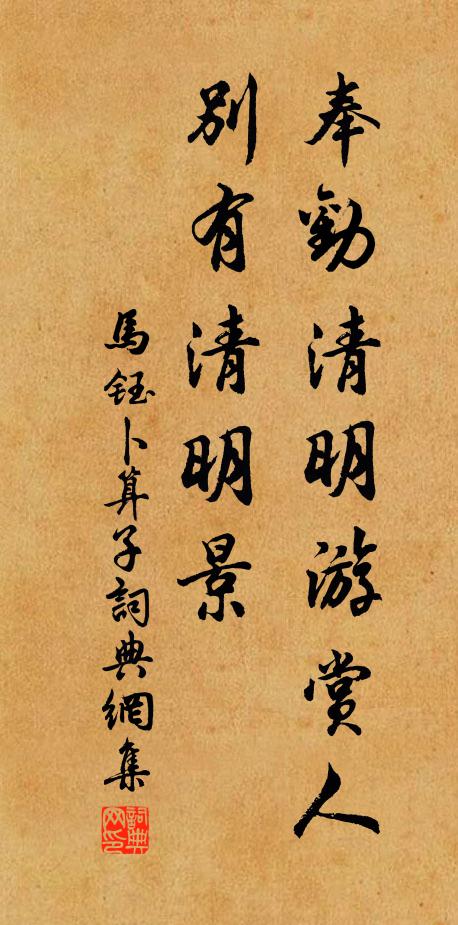 奉勸清明游賞人
別有清明景
馬鈺卜算子詞典網集
詞典网印